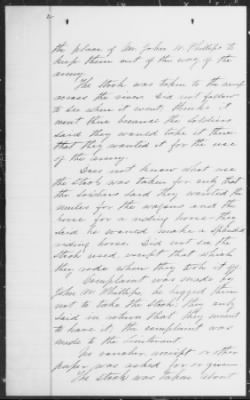 2
the place of Mr. John W. Phillips to
keep them out of the way of the
army.
The stock was taken to the camp
across the river. Did not follow
to see where it went, thinks it
went there because the soldiers
said they would take it there
that they wanted it for the use
of the Army.
Does not know what use
the stock was taken for only that
the soldiers said they wanted the
mules for the wagons and the
horse for a riding horse - they
said he would make a splendid
riding horse. Did not see the
stock used except that which
they rode when they took it off.
Complaint was made by
John W. Phillips, he begged them
not to take the stock. They only
said in return that they meant
to have it. The complaint was
made to the Lieutenant.
No voucher receipt or other
paper was asked for or given
The stock was taken about